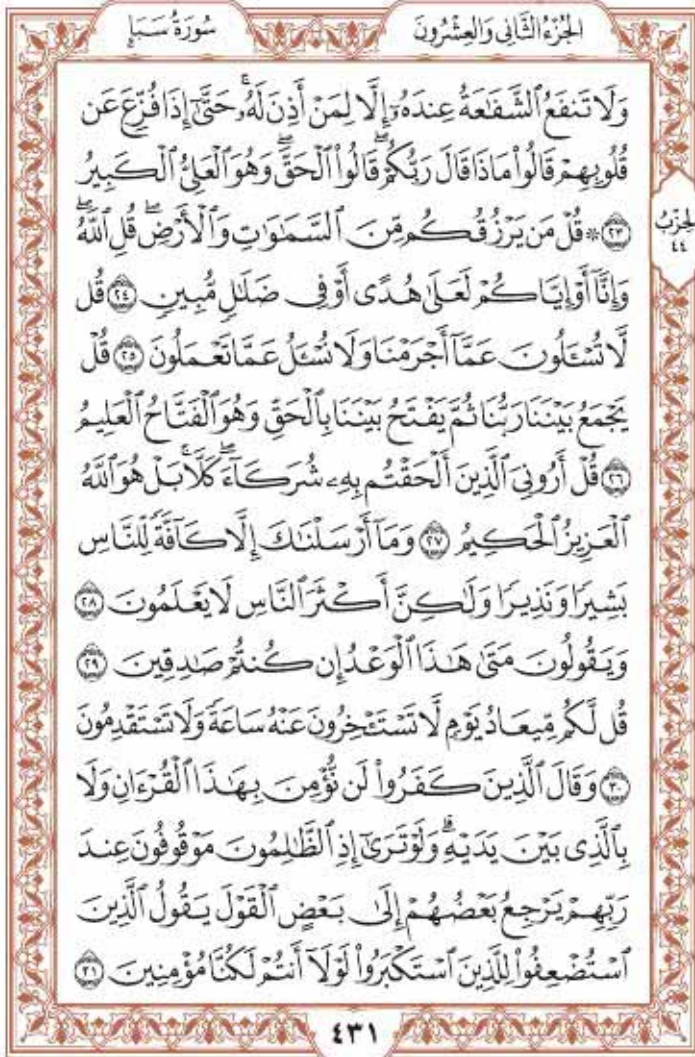 الجُزْءُ الثَّانِي وَالعِشْرُونَ
سُورَةُ سَبَإٍ
وَلَا تَنفَعُ ٱلشَّفَٰعَةُ عِندَهُۥٓ إِلَّا لِمَنْ أَذِنَ لَهُۥۚ حَتَّىٰٓ إِذَا فُزِّعَ عَن
قُلُوبِهِمْ قَالُوا۟ مَاذَا قَالَ رَبُّكُمْۖ قَالُوا۟ ٱلْحَقَّۖ وَهُوَ ٱلْعَلِىُّ ٱلْكَبِيرُ
الحِزْبُ
٤٤
٢٣ ۞ قُلْ مَن يَرْزُقُكُم مِّنَ ٱلسَّمَٰوَٰتِ وَٱلْأَرْضِۖ قُلِ ٱللَّهُۖ
وَإِنَّآ أَوْ إِيَّاكُمْ لَعَلَىٰ هُدًى أَوْ فِى ضَلَٰلٍ مُّبِينٍ ٢٤ قُل
لَّا تُسْـَٔلُونَ عَمَّآ أَجْرَمْنَا وَلَا نُسْـَٔلُ عَمَّا تَعْمَلُونَ ٢٥ قُلْ
يَجْمَعُ بَيْنَنَا رَبُّنَا ثُمَّ يَفْتَحُ بَيْنَنَا بِٱلْحَقِّ وَهُوَ ٱلْفَتَّاحُ ٱلْعَلِيمُ
٢٦ قُلْ أَرُونِىَ ٱلَّذِينَ أَلْحَقْتُم بِهِۦ شُرَكَآءَۖ كَلَّاۚ بَلْ هُوَ ٱللَّهُ
ٱلْعَزِيزُ ٱلْحَكِيمُ ٢٧ وَمَآ أَرْسَلْنَٰكَ إِلَّا كَآفَّةً لِّلنَّاسِ
بَشِيرًا وَنَذِيرًا وَلَٰكِنَّ أَكْثَرَ ٱلنَّاسِ لَا يَعْلَمُونَ ٢٨
وَيَقُولُونَ مَتَىٰ هَٰذَا ٱلْوَعْدُ إِن كُنتُمْ صَٰدِقِينَ ٢٩
قُل لَّكُم مِّيعَادُ يَوْمٍ لَّا تَسْتَـْٔخِرُونَ عَنْهُ سَاعَةً وَلَا تَسْتَقْدِمُونَ
٣٠ وَقَالَ ٱلَّذِينَ كَفَرُوا۟ لَن نُّؤْمِنَ بِهَٰذَا ٱلْقُرْءَانِ وَلَا
بِٱلَّذِى بَيْنَ يَدَيْهِۗ وَلَوْ تَرَىٰٓ إِذِ ٱلظَّٰلِمُونَ مَوْقُوفُونَ عِندَ
رَبِّهِمْ يَرْجِعُ بَعْضُهُمْ إِلَىٰ بَعْضٍ ٱلْقَوْلَ يَقُولُ ٱلَّذِينَ
ٱسْتُضْعِفُوا۟ لِلَّذِينَ ٱسْتَكْبَرُوا۟ لَوْلَآ أَنتُمْ لَكُنَّا مُؤْمِنِينَ ٣١
٤٣١